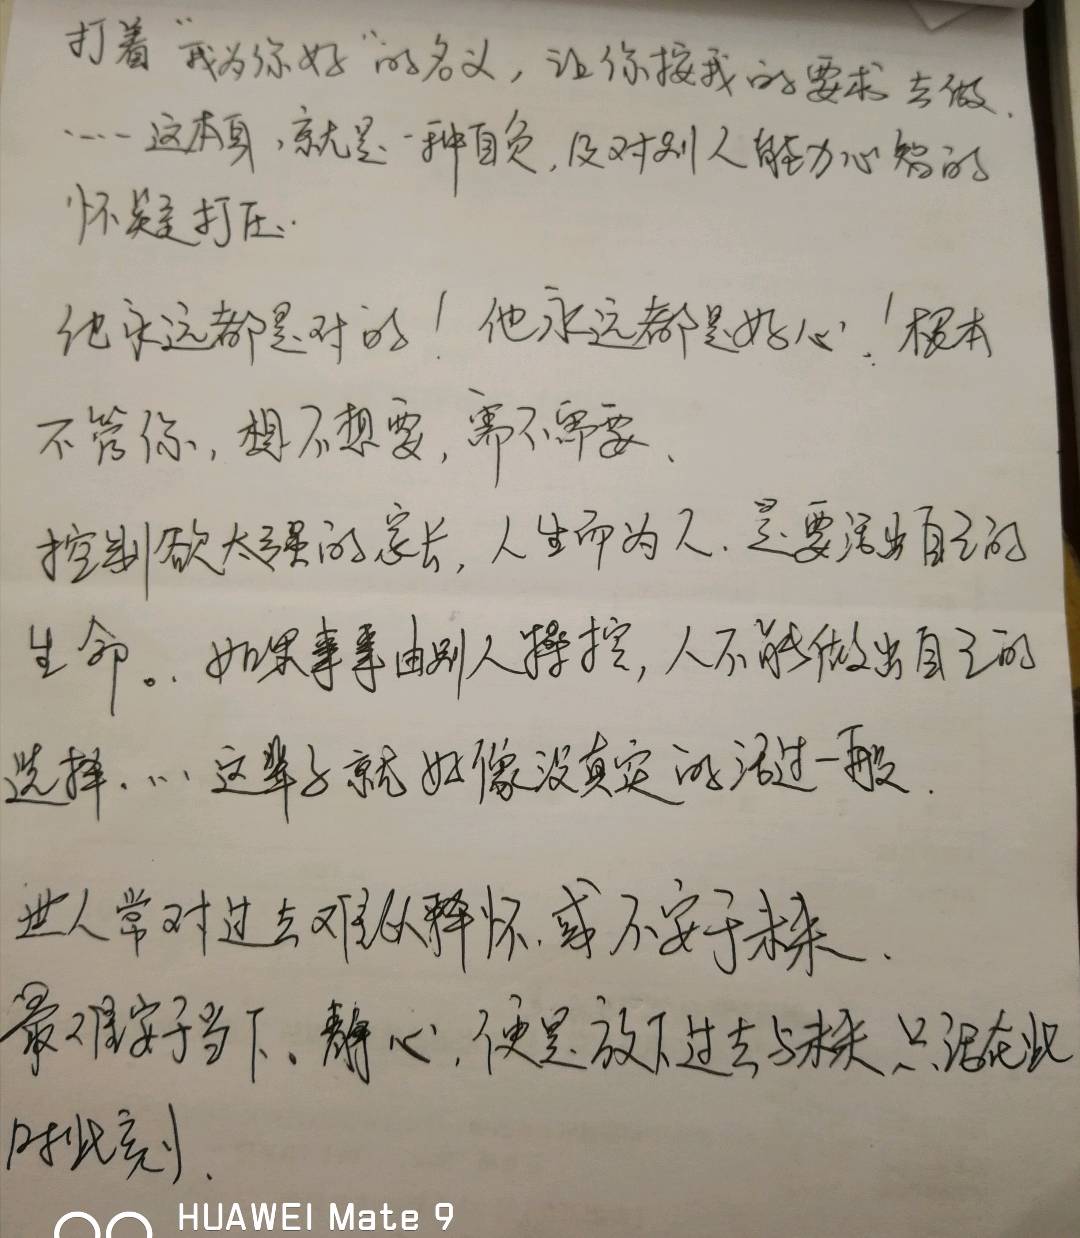 打着“我为你好”的名义，让你按我的要求去做.
……这本身，就是一种自负，及对别人能力心智的
怀疑打压..
他永远都是对的！他永远都是好心！根本
不管你，想不想要，需不需要、
控制欲太强的家长，人生而为人.是要活出自己的
生命。..如果事事由别人操控，人不能做出自己的
选择....这辈子就好像没真实的活过一般.
世人常对过去难以释怀.或不安于未来.
最难安于当下。静心，便是放下过去与未来只活在此
时此刻.
HUAWEI Mate 9